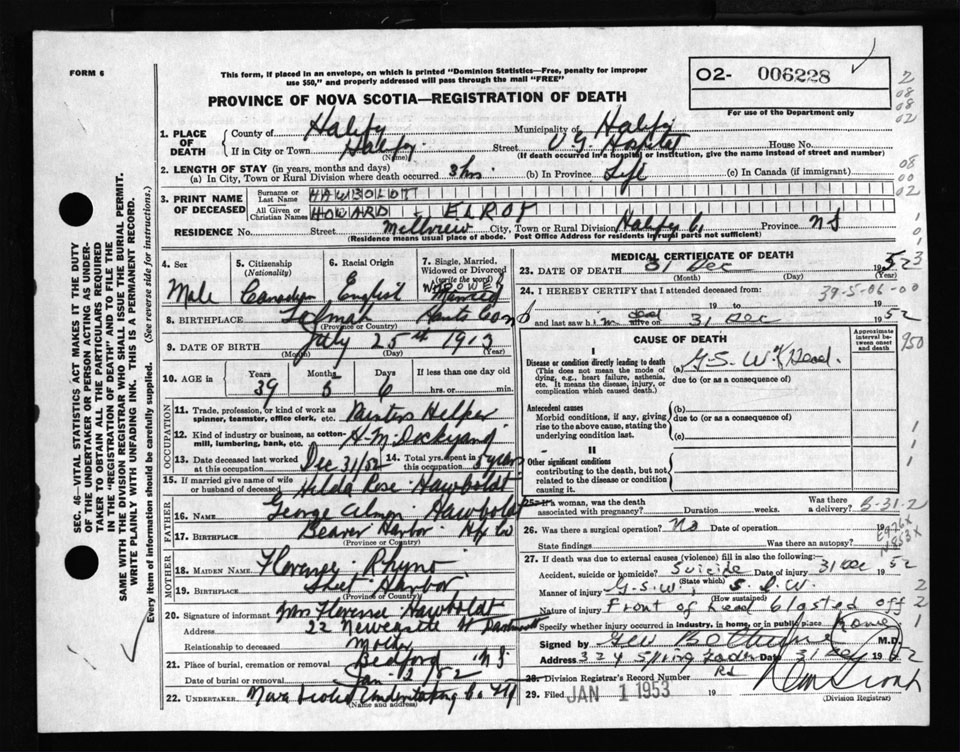 FORM 6
This form, if placed in an envelope, on which is printed "Dominion Statistics—Free, penalty for improper
use $50," and properly addressed will pass through the mail "FREE"
O2- 006228
For use of the Department only
PROVINCE OF NOVA SCOTIA—REGISTRATION OF DEATH
1. PLACE OF DEATH { County of Halifx Municipality of Halifx
If in City or Town Halifx. Street V. G. Hospital House No.
(Name) (If death occurred in a hospital or institution, give the name instead of street and number)
2. LENGTH OF STAY (in years, months and days)
(a) In City, Town or Rural Division where death occurred 3 hrs (b) In Province Life (c) In Canada (if immigrant)
3. PRINT NAME OF DECEASED { Surname or Last Name HAWBOLDT
All Given or Christian Names HOWARD - ELROY
RESIDENCE No. Street Millview City, Town or Rural Division Halifx Co Province NS
(Residence means usual place of abode. Post Office Address for residents in rural parts not sufficient)
4. Sex Male
5. Citizenship (Nationality) Canadian
6. Racial Origin English
7. Single, Married, Widowed or Divorced (write the word) WIDOWED Married
8. BIRTHPLACE Hants Co
(Province or Country)
9. DATE OF BIRTH July 25th 1913
(Month) (Day) (Year)
10. AGE in { Years 39 Months 5 Days 6 If less than one day old
hrs. or min.
OCCUPATION
11. Trade, profession or kind of work as spinner, teamster, office clerk, etc. Helper
12. Kind of industry or business, as cotton-mill, lumbering, bank, etc. H.M. Dockyard
13. Date deceased last worked at this occupation Dec 31/52 14. Total yrs. spent in this occupation 5 years
15. If married give name of wife or husband of deceased Hilda Rose Hawboldt
FATHER
16. NAME George Hawboldt
17. BIRTHPLACE Beaver Harbor Hfx Co
(Province or Country)
MOTHER
18. MAIDEN NAME Rhyno
19. BIRTHPLACE Sheet Harbor
(Province or Country)
20. Signature of informant Mrs Hawboldt
Address 22 Newcastle St Dartmouth
Relationship to deceased Mother
21. Place of burial, cremation or removal Bedford NS
Date of burial or removal Jan 2/52
22. UNDERTAKER Nova Scotia Undertaking Co Ltd
(Name and address)
MEDICAL CERTIFICATE OF DEATH
23. DATE OF DEATH 31 Dec 1952
(Month) (Day) (Year)
24. I HEREBY CERTIFY that I attended deceased from
19 to 19
and last saw him dead alive on 31 Dec 1952
39-5-06-00
CAUSE OF DEATH
Approximate interval between onset and death
I
Disease or condition directly leading to death
(This does not mean the mode of dying, e.g., heart failure, asthenia, etc. It means the disease, injury, or complication which caused death.)
(a) G.S.W. Head.
due to (or as a consequence of)
Antecedent causes
Morbid conditions, if any, giving rise to the above cause, stating the underlying condition last.
(b)
due to (or as a consequence of)
(c)
II
Other significant conditions
contributing to the death, but not related to the disease or condition causing it.
25. If a woman, was the death associated with pregnancy? Duration weeks. Was there a delivery?
26. Was there a surgical operation? No Date of operation 19
State findings Was there an autopsy?
27. If death was due to external causes (violence) fill in also the following:—
Accident, suicide or homicide? Suicide Date of injury 31 Dec 1952
(State which)
Manner of injury G.S.W.
(How sustained)
Nature of injury Front of head blasted off
Specify whether injury occurred in industry, in home, or in public place Home
Signed by M.D.
Address 324 Spring Garden Rd Date 31 Dec 1952
28. Division Registrar's Record Number
29. Filed JAN 1 1953 19
(Division Registrar)
SEC. 46—VITAL STATISTICS ACT MAKES IT THE DUTY
OF THE UNDERTAKER OR PERSON ACTING AS UNDER-
TAKER TO OBTAIN ALL THE PARTICULARS REQUIRED
IN THE "REGISTRATION OF DEATH" AND TO FILE THE
SAME WITH THE DIVISION REGISTRAR WHO SHALL ISSUE THE BURIAL PERMIT.
WRITE PLAINLY WITH UNFADING INK. THIS IS A PERMANENT RECORD.
Every item of information should be carefully supplied. (See reverse side for instructions.)